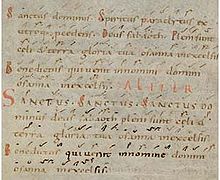 Sanctus dominus. Spiritus paraclytus ex
utroq; procedens. Deus sabaoth. Pleni sunt
celi & terra gloria tua osanna inexcelsis.
Benedictus qui uenit innomini domini
osanna inexcelsis. ALITER
SANCTUS. SANCTUS. SANCTUS DO
minus deus sabaoth pleni sunt celi &
terra gloria tua osanna inexcelsis.
Benedictus qui uenit innomine domini
osanna inexcelsis.